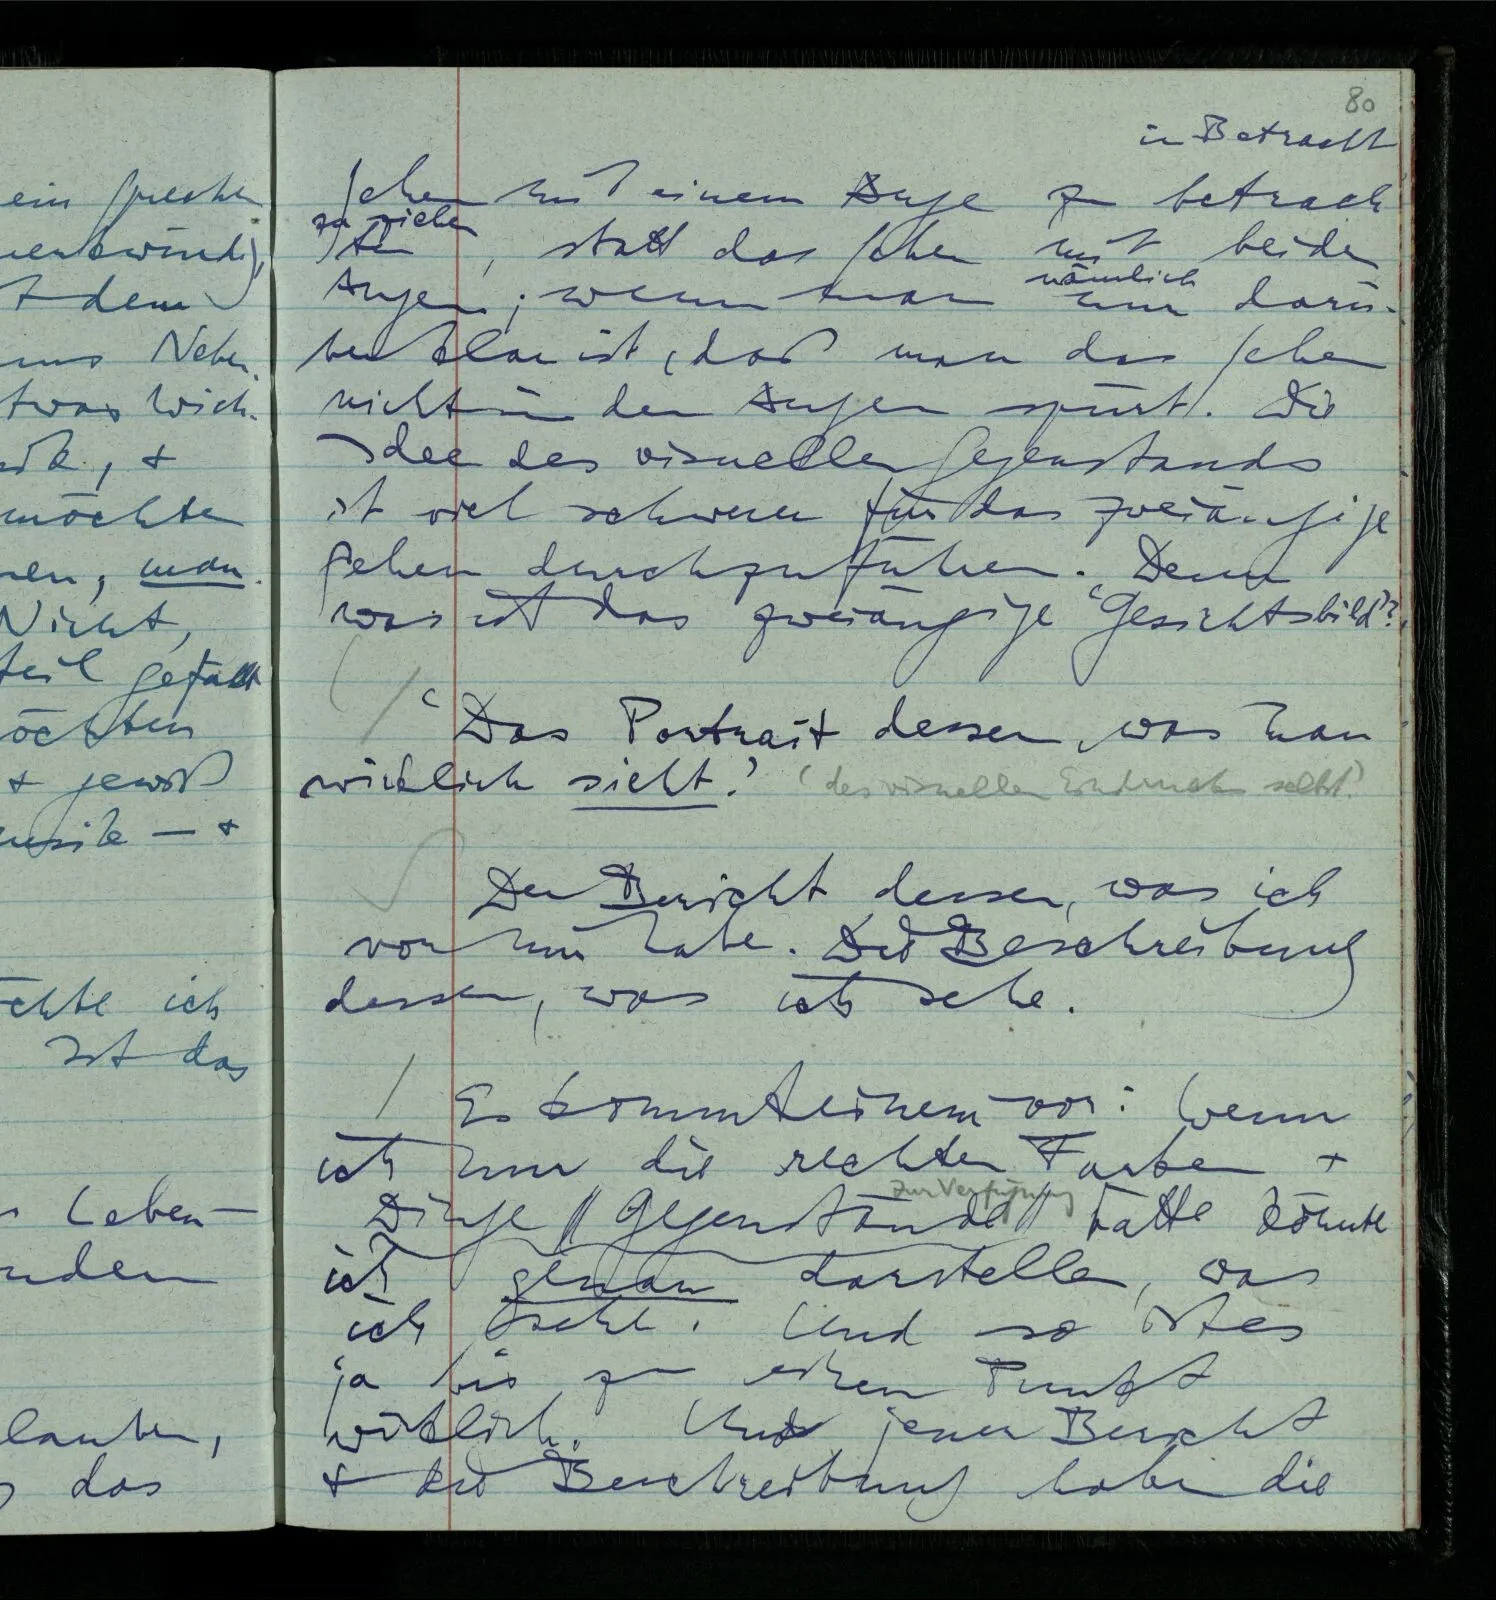 ein sprechen
merkwürdig,
t dem
uns Neben
twas Wich-
, +
möchte
nen, man
Nicht,
teil gefällt
öchten
+ gewiß
— +
öchte ich
Ist das
Leben —
nden
lauben,
das
80
in Betracht
Sehen mit einem Auge zu betrach
zu ziehen
ten, statt das Sehen mit beiden
nämlich
Augen; wenn man nur darü-
ber klar ist, daß man das Sehen
nicht in den Augen spürt. Die
Idee des visuellen Gegenstands
ist viel schwerer für das zweiäugige
Sehen durchzuführen. Denn
was ist das zweiäugige ‘Gesichtsbild’?
‘Das Portrait dessen, was man
wirklich sieht.’ (‘des visuellen Eindrucks selbst.’
Der Bericht dessen, was ich
vor mir habe. Die Beschreibung
dessen, was ich sehe.
Es kommt einem vor: Wenn
ich nur die rechten Farben +
zur Verfügung
Dinge // Gegenstände // hätte könnte
ich genau darstellen, was
ich sehe. Und so ist es
ja bis zu einem Punkt
wirklich. Und jener Bericht
+ die Beschreibung haben die